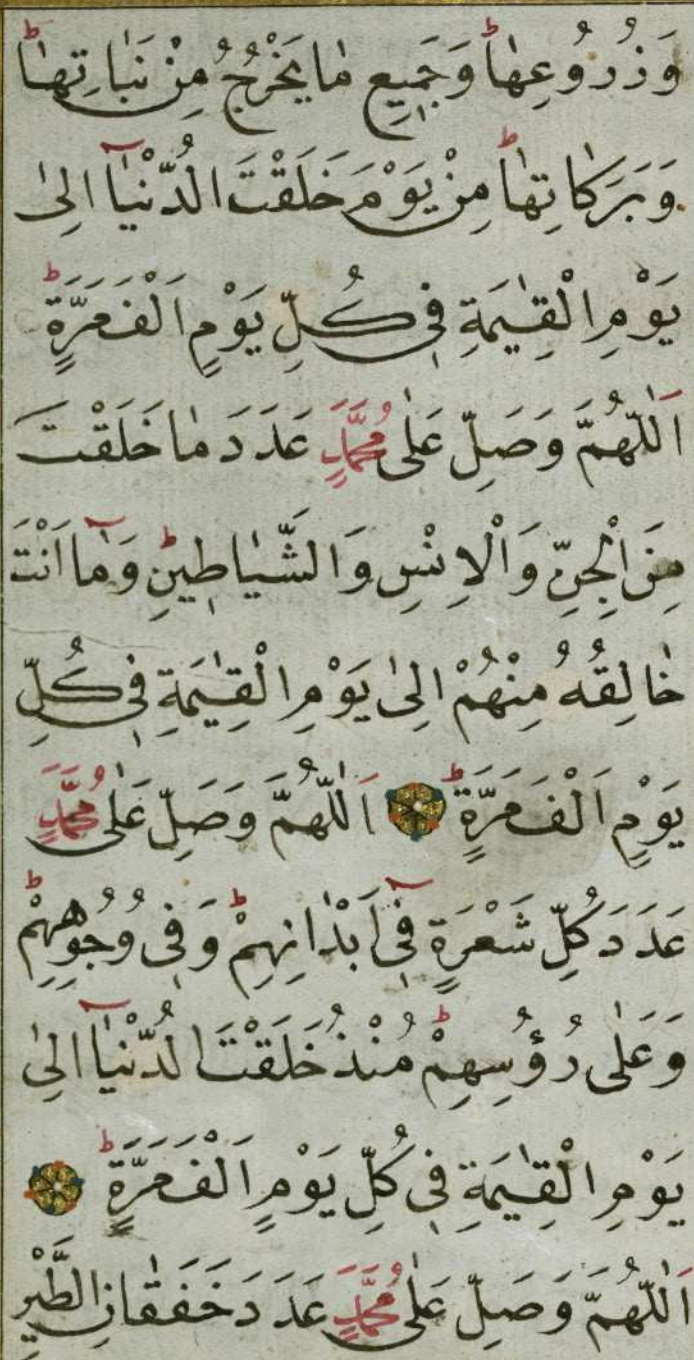 وَذُرُوعِهَاۜ وَجَمِيعِ مَا يَخْرُجُ مِنْ نَبَاتِهَاۜ
وَبَرَكَاتِهَا مِنْ يَوْمَ خَلَقْتَ الدُّنْيَآ اِلٰى
يَوْمِ الْقِيٰمَةِ فِى كُلِّ يَوْمٍ اَلْفَ مَرَّةٍ ط
اَللّٰهُمَّ وَصَلِّ عَلٰى مُحَمَّدٍ عَدَدَ مَا خَلَقْتَ
مِنَ الْجِنِّ وَالْاِنْسِ وَالشَّيَاطِينِ وَمَآ اَنْتَ
خَالِقُهُ مِنْهُمْ اِلٰى يَوْمِ الْقِيٰمَةِ فِى كُلِّ
يَوْمٍ اَلْفَ مَرَّةٍ ط اَللّٰهُمَّ وَصَلِّ عَلٰى مُحَمَّدٍ
عَدَدَ كُلِّ شَعْرَةٍ فِىٓ اَبْدَانِهِمْ ط وَفِى وُجُوهِهِمْ ط
وَعَلٰى رُؤُسِهِمْ ط مُنْذُ خَلَقْتَ الدُّنْيَآ اِلٰى
يَوْمِ الْقِيٰمَةِ فِى كُلِّ يَوْمٍ اَلْفَ مَرَّةٍ ط
اَللّٰهُمَّ وَصَلِّ عَلٰى مُحَمَّدٍ عَدَدَ خَفَقَانِ الطَّيْرِ